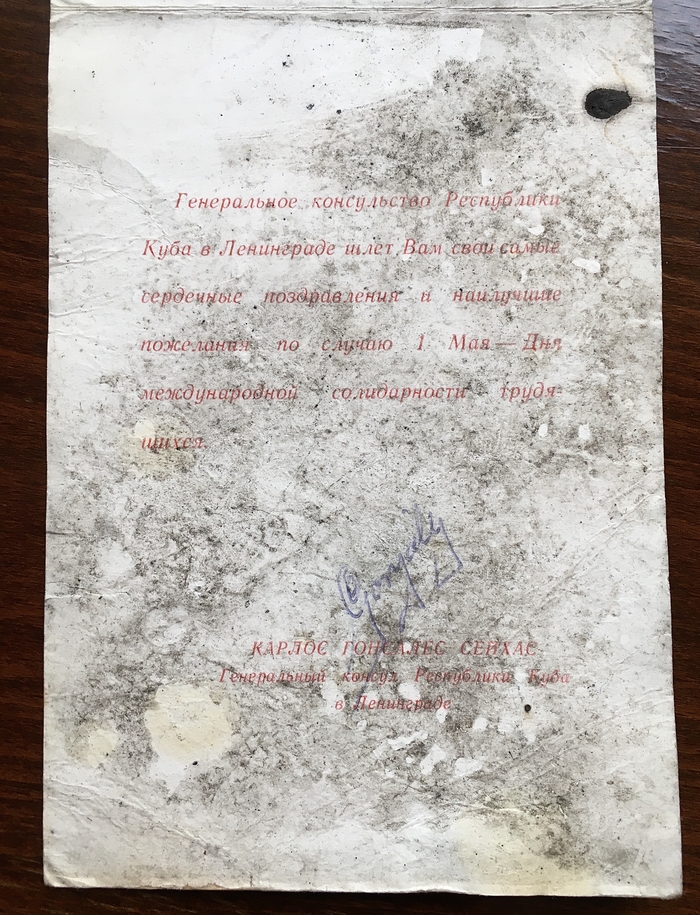 Генеральное консульство Республики
Куба в Ленинграде шлет Вам свои самые
сердечные поздравления и наилучшие
пожелания по случаю 1 Мая — Дня
международной солидарности трудя-
щихся.
КАРЛОС ГОНСАЛЕС СЕЙХАС
Генеральный консул Республики Куба
в Ленинграде